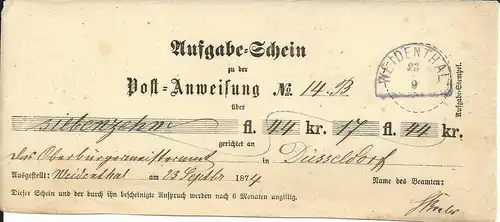 Aufgabe-Schein
zu der
Post-Anweisung № 14.B
über
siebenzehn fl. 44 kr. 17 fl. 44 kr.
gerichtet an
das Oberbürgermeisteramt in Düsseldorf
Ausgestellt: Weidenthal am 23 Septbr 1874 Name des Beamten:
Dieser Schein und der durch ihn bescheinigte Anspruch werden nach 6 Monaten ungiltig.
WEIDENTHAL
23
9
Aufgabe-Stempel.